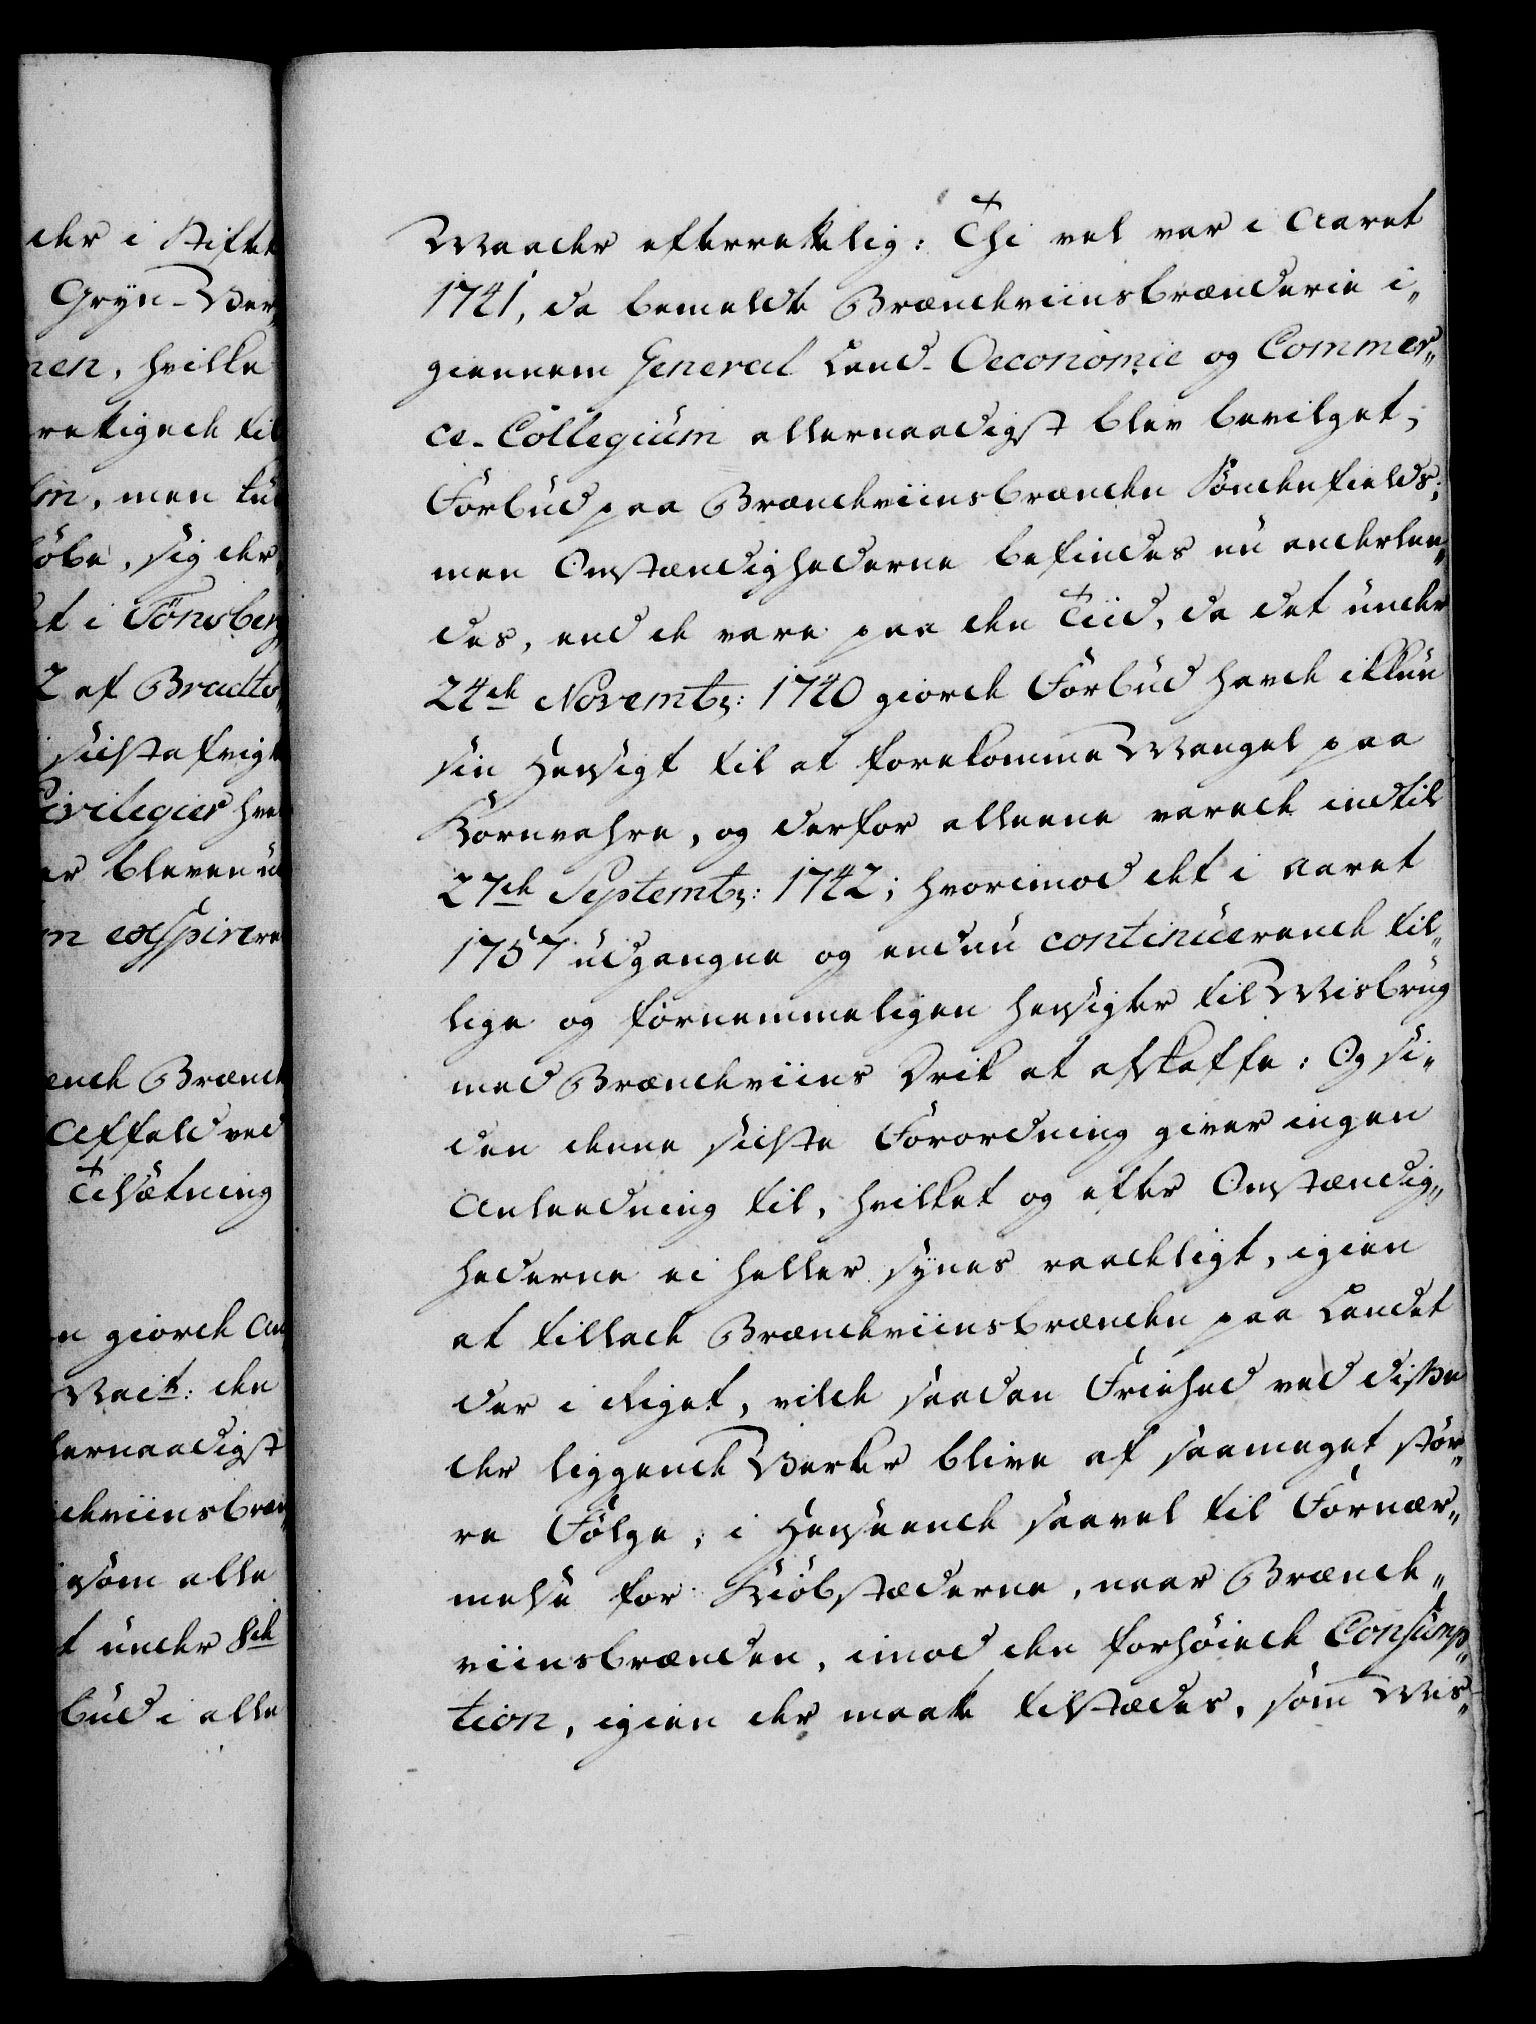 der i Stiftet
Gryn-Ver„
nen, hvilke
rettigede til
lin, men tu
løbe, sig der
et i Tönsberg
2 af Bradts
sidst afvigte
Privilegier hver
er bleven u
n exspirere
ende Brænde
Affald ved
Tilsætning
n giorde An„
Mait: den
lernaadigst
deviinsbræn„
som alle
t under 8de
bud i alle
Maader efterrettelig: Thi vel var i Aaret
1741, da bemeldte Brændeviinsbrænderie i„
giennem General Land-Oeconomie og Commer„
ce-Collegium allernaadigst blev bevilget,
Forbud paa Brændeviinsbrænden Söndenfields;
men Omstændighederne befindes nu anderlee„
des, end de vare paa den Tiid, da det under
24de Novembr: 1740 giorde Forbud havde ikkun
sin Hensigt til at forekomme Mangel paa
Kornvahre, og derfor alleene varede indtil
27de Septembr: 1742; hvorimod det i Aaret
1757 udgangne og endnu continuerende til„
lige og fornemmeligen hensigter til Misbrug
med Brændeviins Drik at afskaffe: Og si„
den denne sidste Forordning giver ingen
Anleedning til, hvilket og efter Omstændig„
hederne ei heller synes raadeligt, igien
at tillade Brændeviinsbrænden paa Landet
der i Riget, vilde saadan Friehed ved disse
der liggende Verker blive af saameget stör„
re Fölge, i Henseende saavel til Fornær„
melse for Kiöbstæderne, naar Brænde„
viinsbrænden, imod den forhöiede Consump„
tion, igien der maatte tilstædes, som Mis„